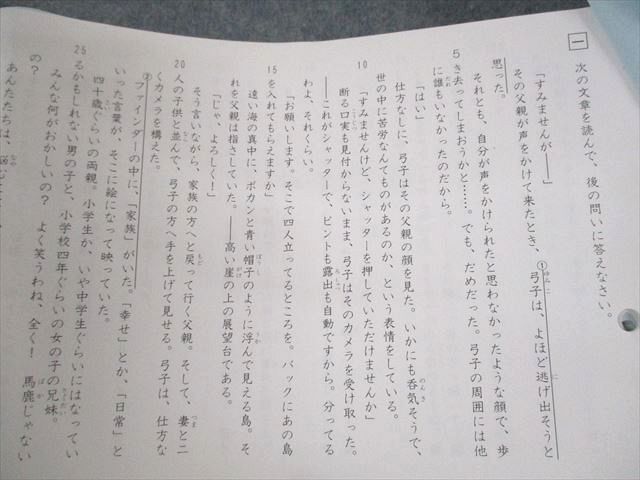 一
次の文章を読んで、後の問いに答えなさい。
「すみませんが――」
その父親が声をかけて来たとき、①弓子は、よほど逃げ出そうと
思った。
それとも、自分が声をかけられたと思わなかったような顔で、歩
5 き去ってしまおうかと……。でも、だめだった。弓子の周囲には他
に誰もいなかったのだから。
「はい」
仕方なしに、弓子はその父親の顔を見た。いかにも呑気そうで、
世の中に苦労なんてものがあるのか、という表情をしている。
「すみませんけど、シャッターを押していただけませんか」
10 断る口実も見付からないまま、弓子はそのカメラを受け取った。
――これがシャッターで、ピントも露出も自動ですから。分ってる
わよ、それぐらい。
「お願いします。そこで四人立ってるところを。バックにあの島
15 を入れてもらえますか」
遠い海の真中に、ポカンと青い帽子のように浮んで見える島。そ
れを父親は指さしていた。――高い崖の上の展望台である。
「じゃ、よろしく！」
そう言いながら、家族の方へと戻って行く父親。そして、妻と二
20 人の子供と並んで、弓子の方へ手を上げて見せる。弓子は、仕方な
くカメラを構えた。
②ファインダーの中に、「家族」がいた。「幸せ」とか、「日常」と
いった言葉が、そこに絵になって映っていた。
四十歳ぐらいの両親。小学生か、いや中学生ぐらいにはなってい
25 るかもしれない男の子と、小学校四年ぐらいの女の子の兄妹。
みんな何がおかしいの？　よく笑うわね、全く！　馬鹿じゃない
の？
あんたたちは、